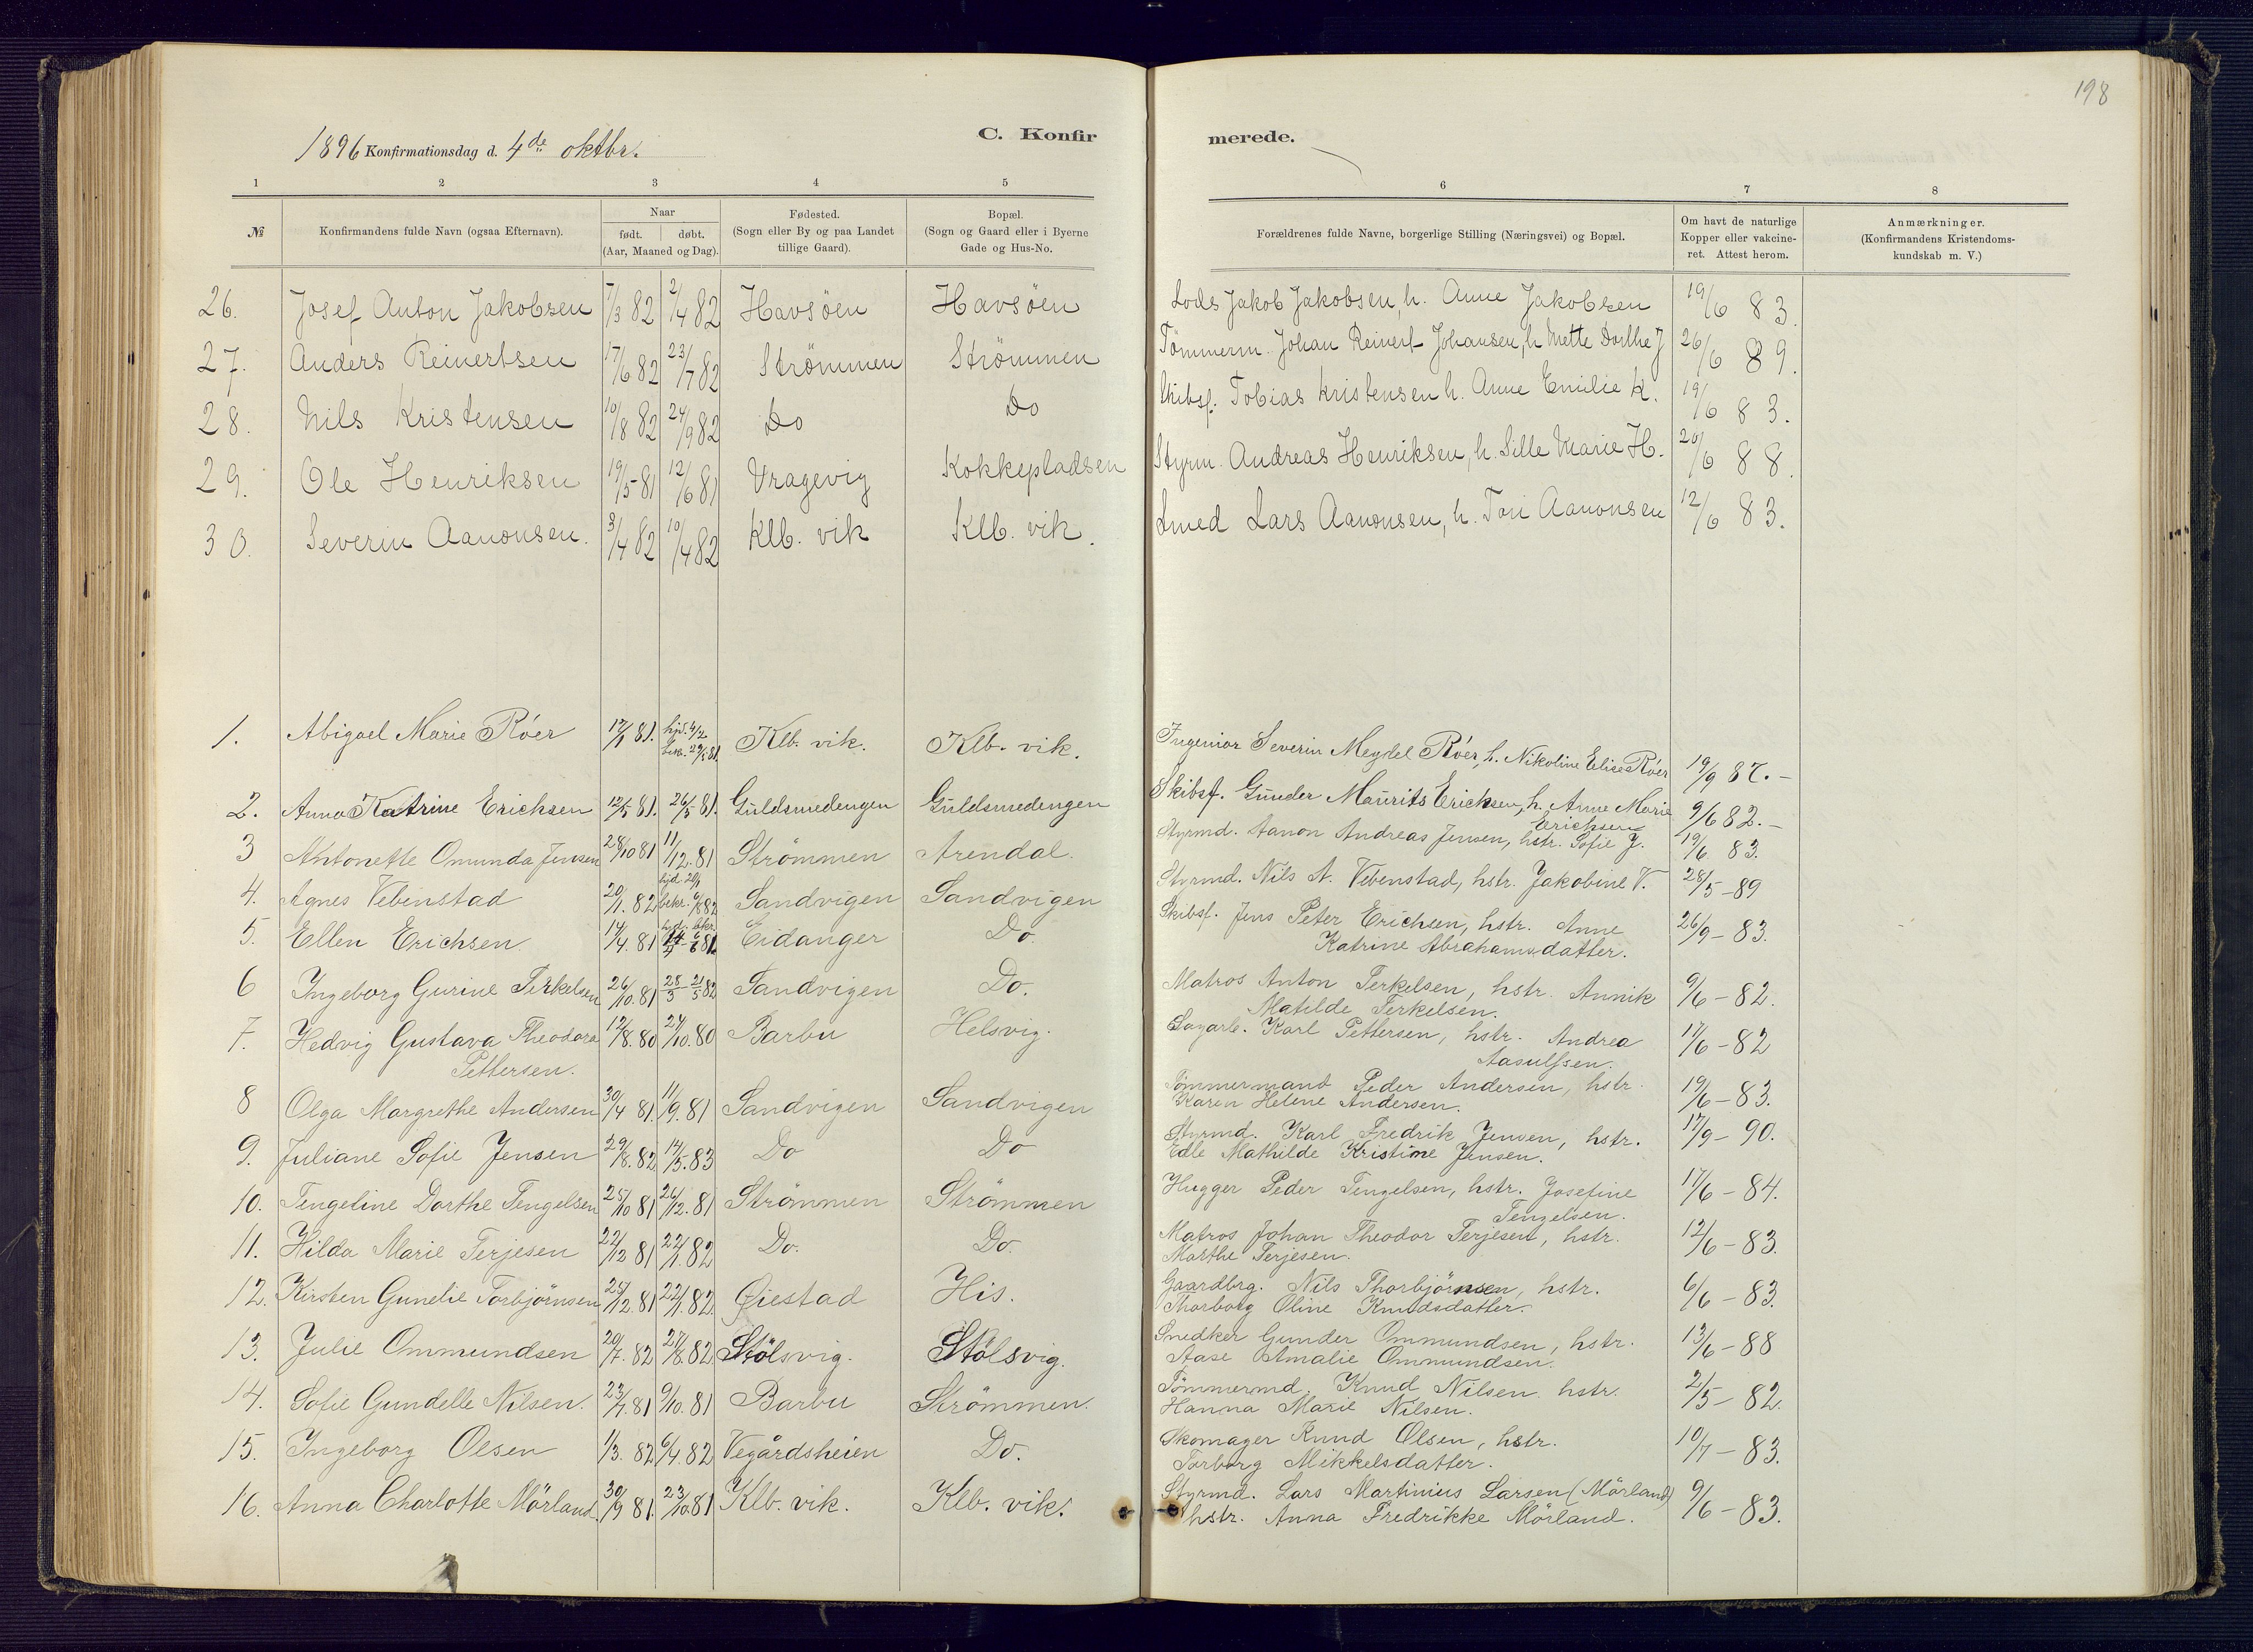 198
C. Konfirmerede.
1896 Konfirmationsdag d. 4de oktbr.
1 2 3 4 5 6 7 8
№ Konfirmandens fulde Navn (ogsaa Efternavn). Naar født. døbt. (Aar, Maaned og Dag). Fødested. (Sogn eller By og paa Landet tillige Gaard). Bopæl. (Sogn og Gaard eller i Byerne Gade og Hus-No. Forældrenes fulde Navne, borgerlige Stilling (Næringsvei) og Bopæl. Om havt de naturlige Kopper eller vakcineret. Attest herom. Anmærkninger. (Konfirmandens Kristendomskundskab m. V.)
26. Josef Anton Jakobsen 7/3 82 2/4 82 Havsöen Havsöen Lods Jakob Jakobsen, h. Anne Jakobsen 19/6 83.
27. Anders Reinertsen 17/6 82 23/7 82 Strömmen Strömmen Tömmerm. Johan Reinert Johansen, h Mette Dorthe J 26/6 89.
28. Nils Kristensen 10/8 82 24/9 82 Do Do Skibsf. Tobias Kristensen h. Anne Emilie K. 19/6 83.
29. Ole Henriksen 19/5 81 12/6 81 Vragevig Kokkepladsen Styrm. Andreas Henriksen, h. Sille Marie H. 20/6 88.
30. Severin Aanonsen. 3/4 82 10/4 82 Klb. vik Klb. vik. Smed Lars Aanonsen, h. Tori Aanonsen 12/6 83.
1. Abigael Marie Röer 17/1 81. hjd. 4/2 bekr. 29/5 81. Klb. vik. Klb. vik. Ingeniør Severin Meydel Röer, h. Nikoline Elise Röer 19/9 87.-
2. Anna Katrine Erichsen 12/5 81. 26/5 81. Guldsmedengen Guldsmedengen Skibsf. Gunder Maurits Erichsen, h. Anne Marie Erichsen 9/6 82.-
3 Antonette Omunda Jensen 28/10 81 11/12. 81 Strömmen Arendal. Styrmd. Aanon Andreas Jensen, hstr. Sofie J. 19/6. 83.
4. Agnes Vebenstad 20/1. 82 hjd. 20/1 bekr. 6/8 82 Sandvigen Sandvigen Styrmd. Nils A. Vebenstad, hstr. Jakobine V. 28/5-89
5. Ellen Erichsen 14/4. 81 hjd. bkr. 14/4 6/6 81. Eidanger Do. Skibsf. Jens Peter Erichsen, hstr. Anne Katrine Abrahamsdatter. 26/9-83.
6 Ingeborg Gurine Terkelsen 26/10. 81 25/3 - 21/5 82 Sandvigen Do. Matros Anton Terkelsen, hstr. Annik Matilde Terkelsen. 9/6-82.
7. Hedvig Gustava Theodora Pettersen. 12/8. 80 24/10. 80 Barbu Helsvig. Sagarb. Karl Pettersen, hstr. Andrea Aasulfsen. 17/6-82
8 Olga Margrethe Andersen 30/4 81. 11/9. 81 Sandvigen Sandvigen Tömmermand Peder Andersen, hstr. Karen Helene Andersen. 19/6-83.
9. Juliane Sofie Jensen 29/8. 82 14/5. 83 Do Do Styrmd. Karl Fredrik Jensen, hstr. Edle Mathilde Kristine Jensen. 17/9-90.
10. Tengeline Dorthe Tengelsen 25/10 81 26/12. 81 Strömmen Strömmen Hugger Peder Tengelsen, hstr. Josefine Tengelsen. 17/6-84.
11. Hilda Marie Terjesen 22/12 81 22/1. 82 Do. Do. Matros Johan Theodor Terjesen, hstr. Marthe Terjesen. 12/6-83.
12. Kirsten Gunelie Torbjörnsen 25/12. 81 22/1. 82 Øiestad His. Gaardbrg. Nils Thorbjörnsen, hstr. Thorborg Oline Knudsdatter. 6/6-83.
13. Julie Ommundsen 20/7. 82 27/8. 82 Stölsvig. Stölsvig. Snedker Gunder Ommundsen, hstr. Aase Amalie Ommundsen. 13/6-88
14. Sofie Gundelle Nilsen. 23/7. 81 9/10. 81 Barbu Strömmen. Tömmermd. Knud Nilsen hstr. Hanna Marie Nilsen. 2/5-82.
15. Ingeborg Olsen 1/3. 82 6/4. 82 Vegårdsheien Do. Skomager Knud Olsen, hstr. Torborg Mikkelsdatter. 10/7-83.
16. Anna Charlotte Mörland. 30/9 81. 23/10. 81 Klb. vik. Klb. vik. Styrmd. Lars Martinius Larsen (Mörland) hstr. Anna Fredrikke Mörland. 9/6-83.